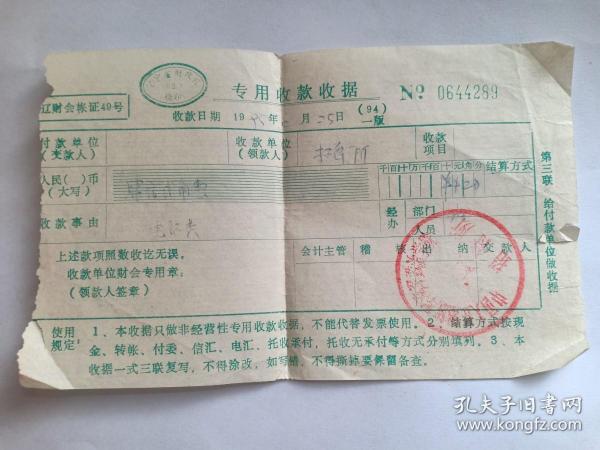 专用收款收据 № 0644289
辽财会帐证49号
收款日期 19 年 月 25日 (94)一版
付款单位(交款人) 收款单位(领款人) 收款项目
人民( )币(大写) 千百十万千百十元角分 结算方式
收款事由 经办 部门 人员
上述款项照数收讫无误。
收款单位财会专用章:
(领款人签章)
会计主管 稽核 出纳 交款人
第三联 给付款单位做收据
使用规定: 1、本收据只做非经营性专用收款收据,不能代替发票使用。2、结算方式按现
金、转帐、付委、信汇、电汇、托收承付、托收无承付等方式分别填列。3、本
收据一式三联复写,不得涂改,如写错,不得撕掉要保留备查。
孔夫子旧书网
www.kongfz.com